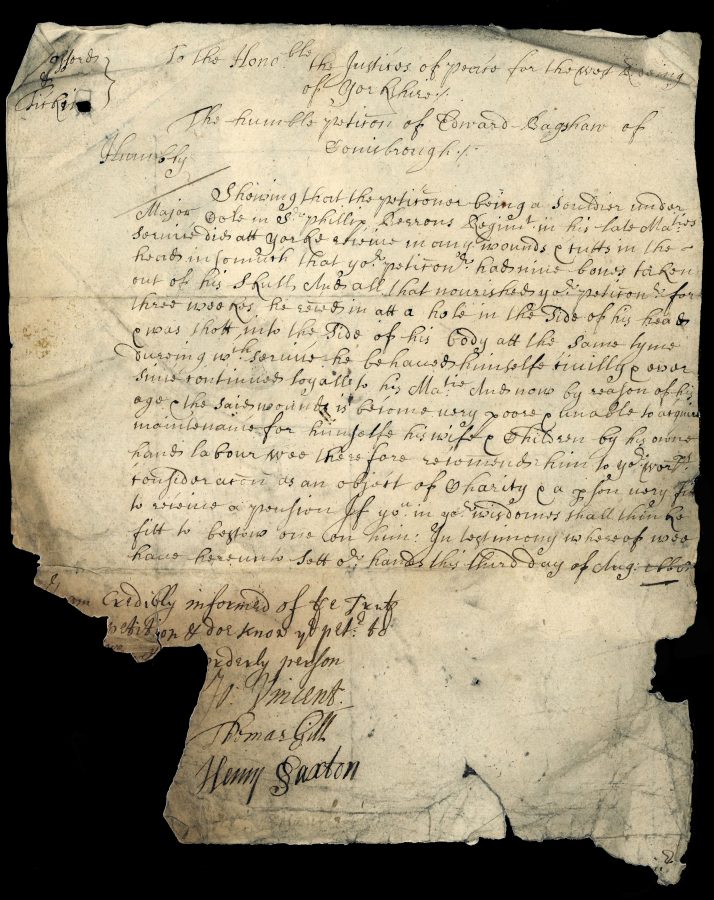 Stafford
&
Tickhill
To the Hono:ble the Justices of peace for the west Rideing
of Yorkshire/.
The humble peticon of Edward Bagshaw of
Conisbrough/.
Humbly
Shewing that the peticoner being a souldier under
Major Cole in Sr phillip Berrons Regimt in his late Maties
service did att Yorke receive many wounds & cutts in the
head in somuch that yor peticonr had nine bones taken
out of his skull And all that nourished yor peticonr for
three weekes he reced in att a hole in the side of his head
& was shott into the side of his body att the same tyme
dureing wch service he behaved himselfe civilly & ever
since continued loyall to his Matie And now by reason of his
age & the said wounds is become very poore & unable to acquire
maintenance for himselfe his wife & Children by his owne
hand labour wee therefore recomend him to yor worps
consideracon as an object of Charity & a pson very fitt
to receive a pension If you in yor wisdomes shall thinke
fitt to bestow one on him: In testimony whereof wee
have hereunto sett or hands this third day of Aug:
am Credibly informed of the Truth
petition & doe know ye petr: to
orderly person
Vincent.
Thomas Gill
Henry Saxton